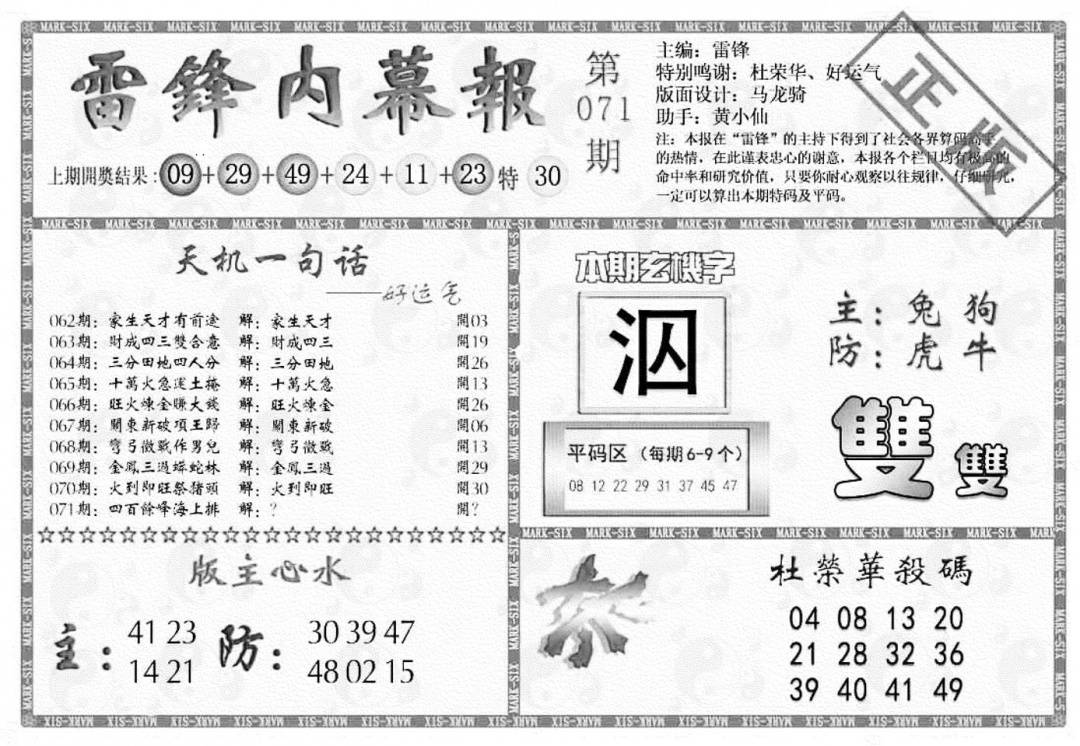 雷鋒内幕報
第071期
上期開獎结果：09+29+49+24+11+23特30
主编：雷锋
特别鸣谢：杜荣华、好运气
版面设计：马龙骑
助手：黄小仙
注：本报在“雷锋”的主持下得到了社会各界算码高手
的热情，在此谨表忠心的谢意，本报各个栏目均有极高的
命中率和研究价值，只要你耐心观察以往规律，仔细研究，
一定可以算出本期特码及平码。
正版
天机一句话
——好运气
062期：家生天才有前途 解：家生天才 開03
063期：財成四三雙合意 解：財成四三 開19
064期：三分田地四人分 解：三分田地 開26
065期：十萬火急運土掩 解：十萬火急 開13
066期：旺火煉金賺大錢 解：旺火煉金 開26
067期：開東新破項王歸 解：開東新破 開06
068期：彎弓徵戰作男兒 解：彎弓徵戰 開13
069期：金鳳三過蟒蛇林 解：金鳳三過 開29
070期：火到即旺祭猪頭 解：火到即旺 開30
071期：四百餘峰海上排 解：? 開?
☆☆☆☆☆☆☆☆☆☆☆☆☆☆☆☆☆☆☆☆☆☆☆☆☆
本期玄機字
泅
主：兔 狗
防：虎 牛
雙 雙
平码区（每期6-9个）
08 12 22 29 31 37 45 47
版主心水
主：
41 23
14 21
防：
30 39 47
48 02 15
杀
杜榮華殺碼
04 08 13 20
21 28 32 36
39 40 41 49
MARK-SIX